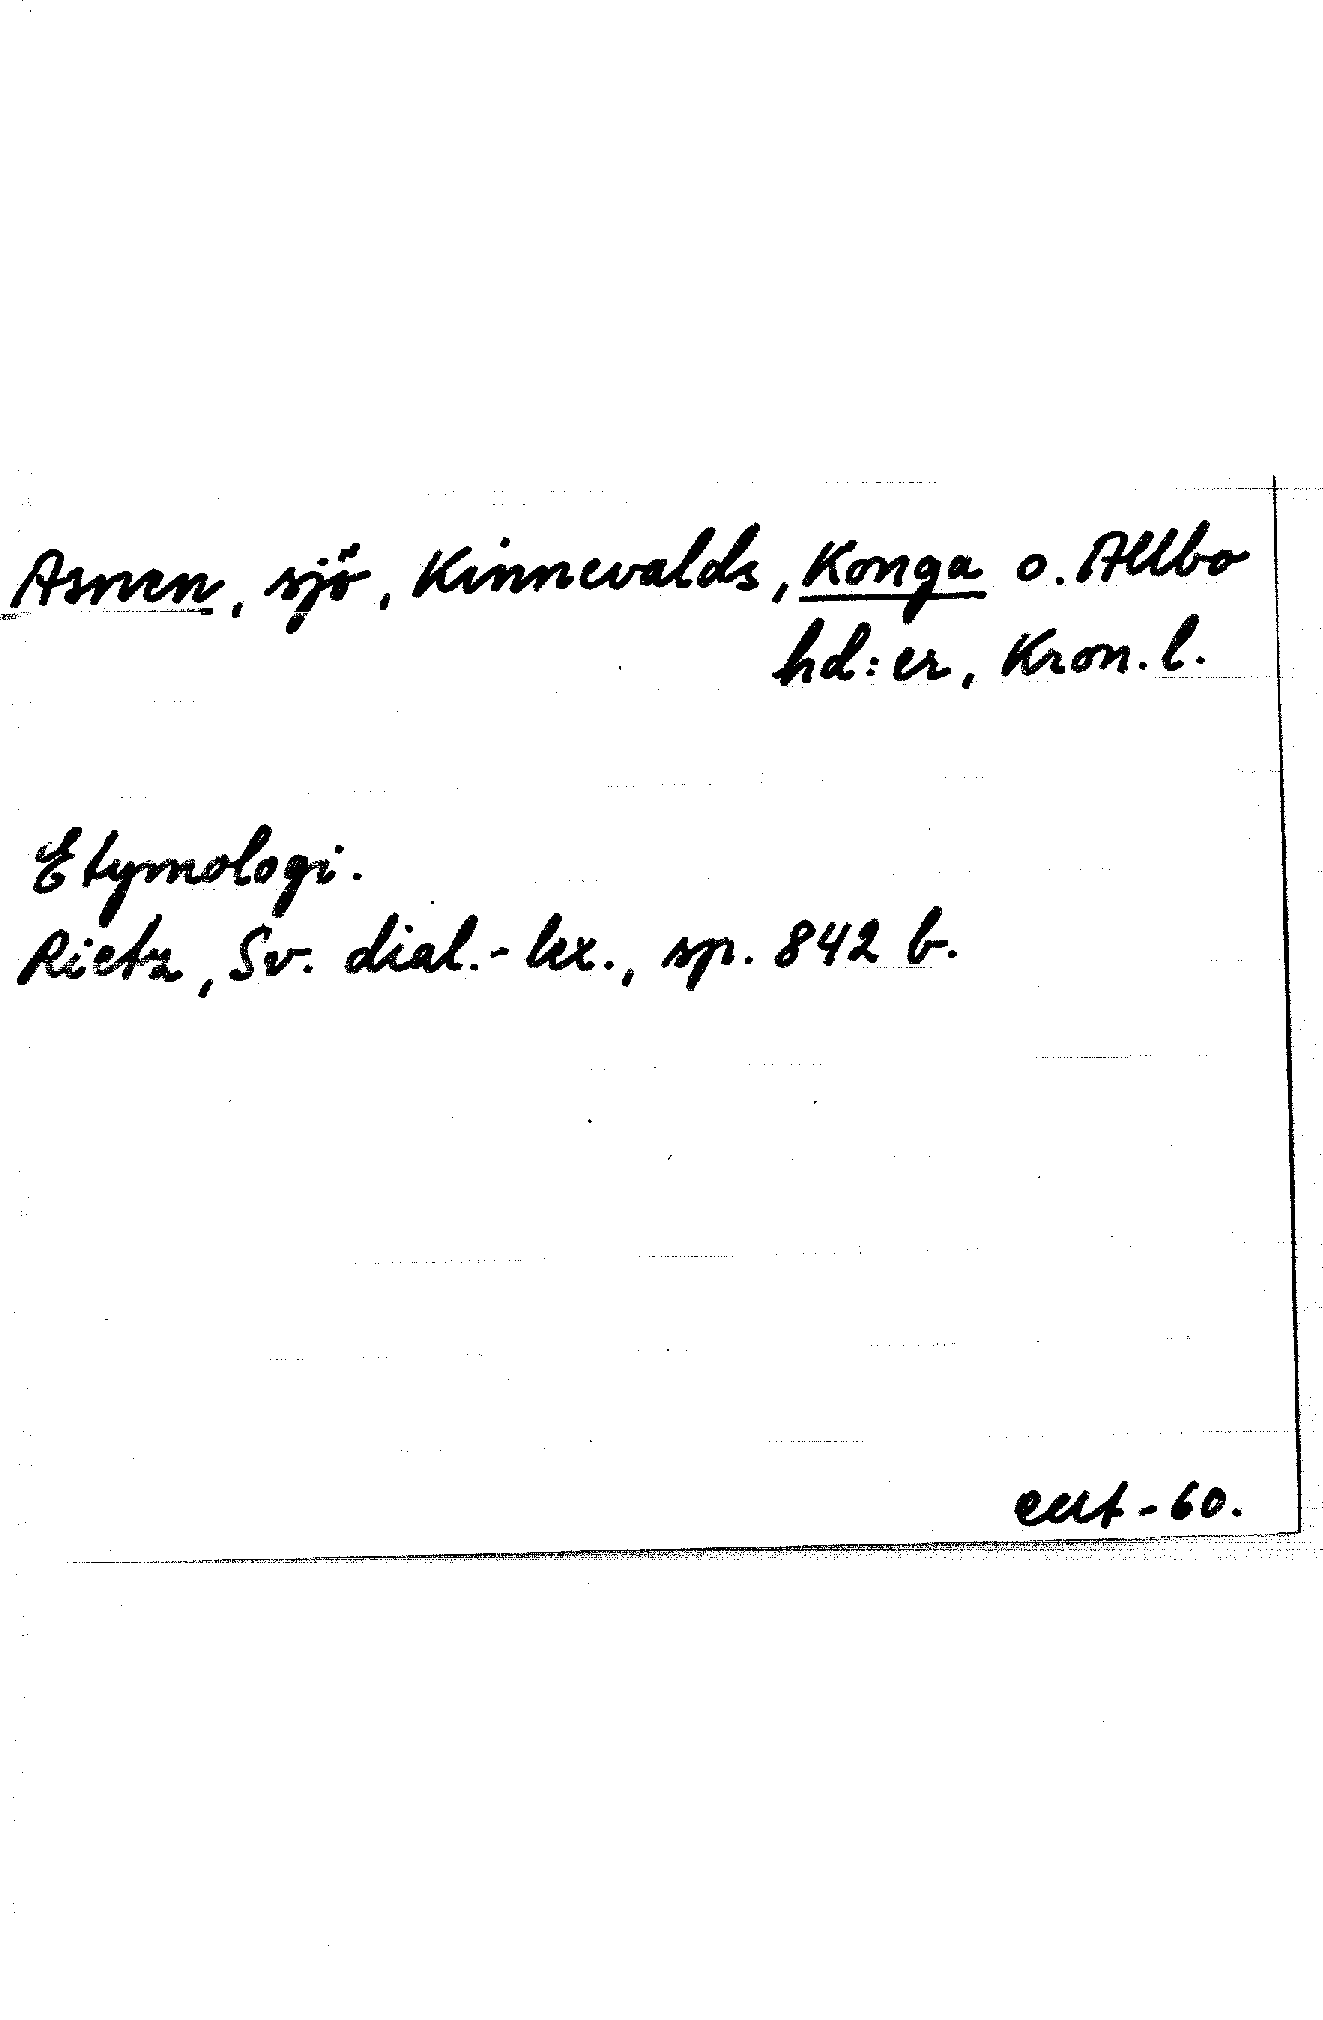 Asnen, sjö, Kinnevalds, Konga o. Allbo
hd:er, Kron. l.
Etymologi.
Rietz, Sv. dial.-lex., sp. 842 b.
-60.